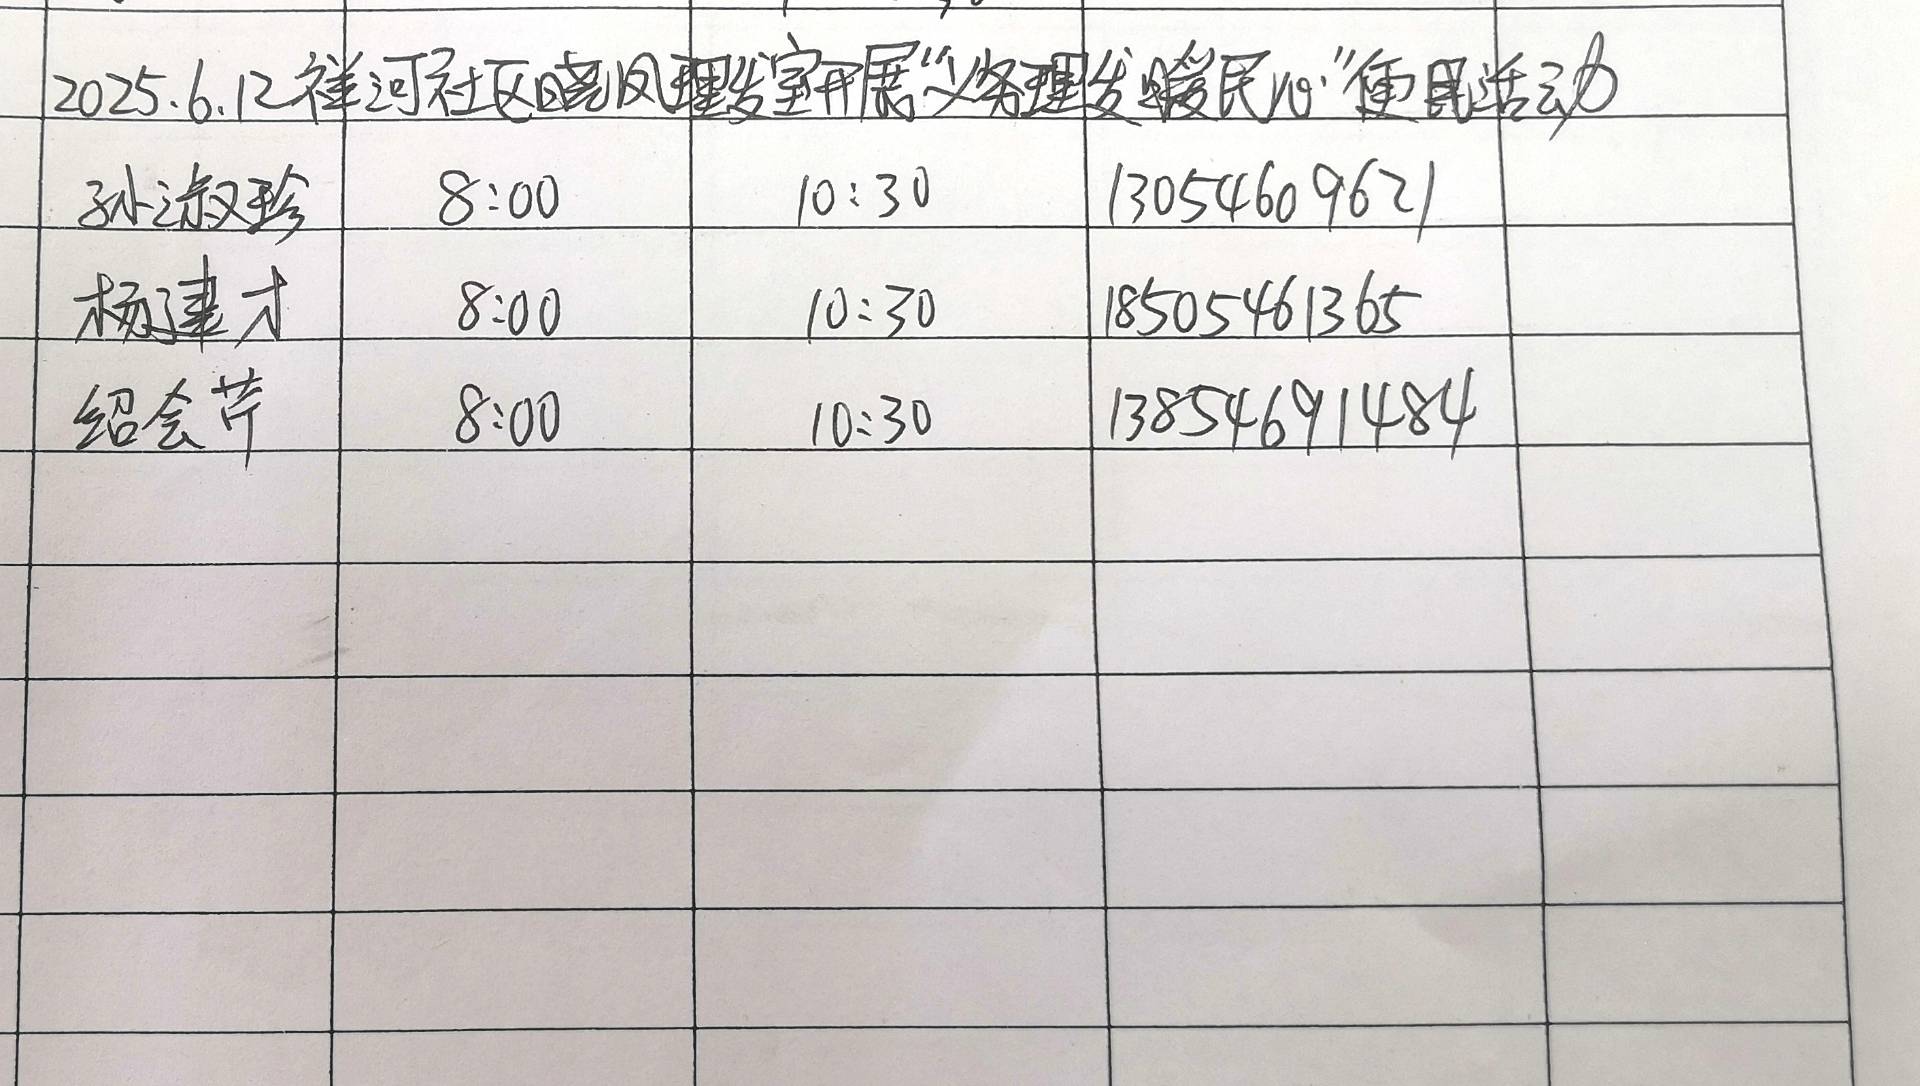 2025.6.12祥河社区晓凤理发室开展“义务理发暖民心”便民活动
孙淑珍 8:00 10:30 13054609621
杨建才 8:00 10:30 18505461365
绍会芹 8:00 10:30 13854691484